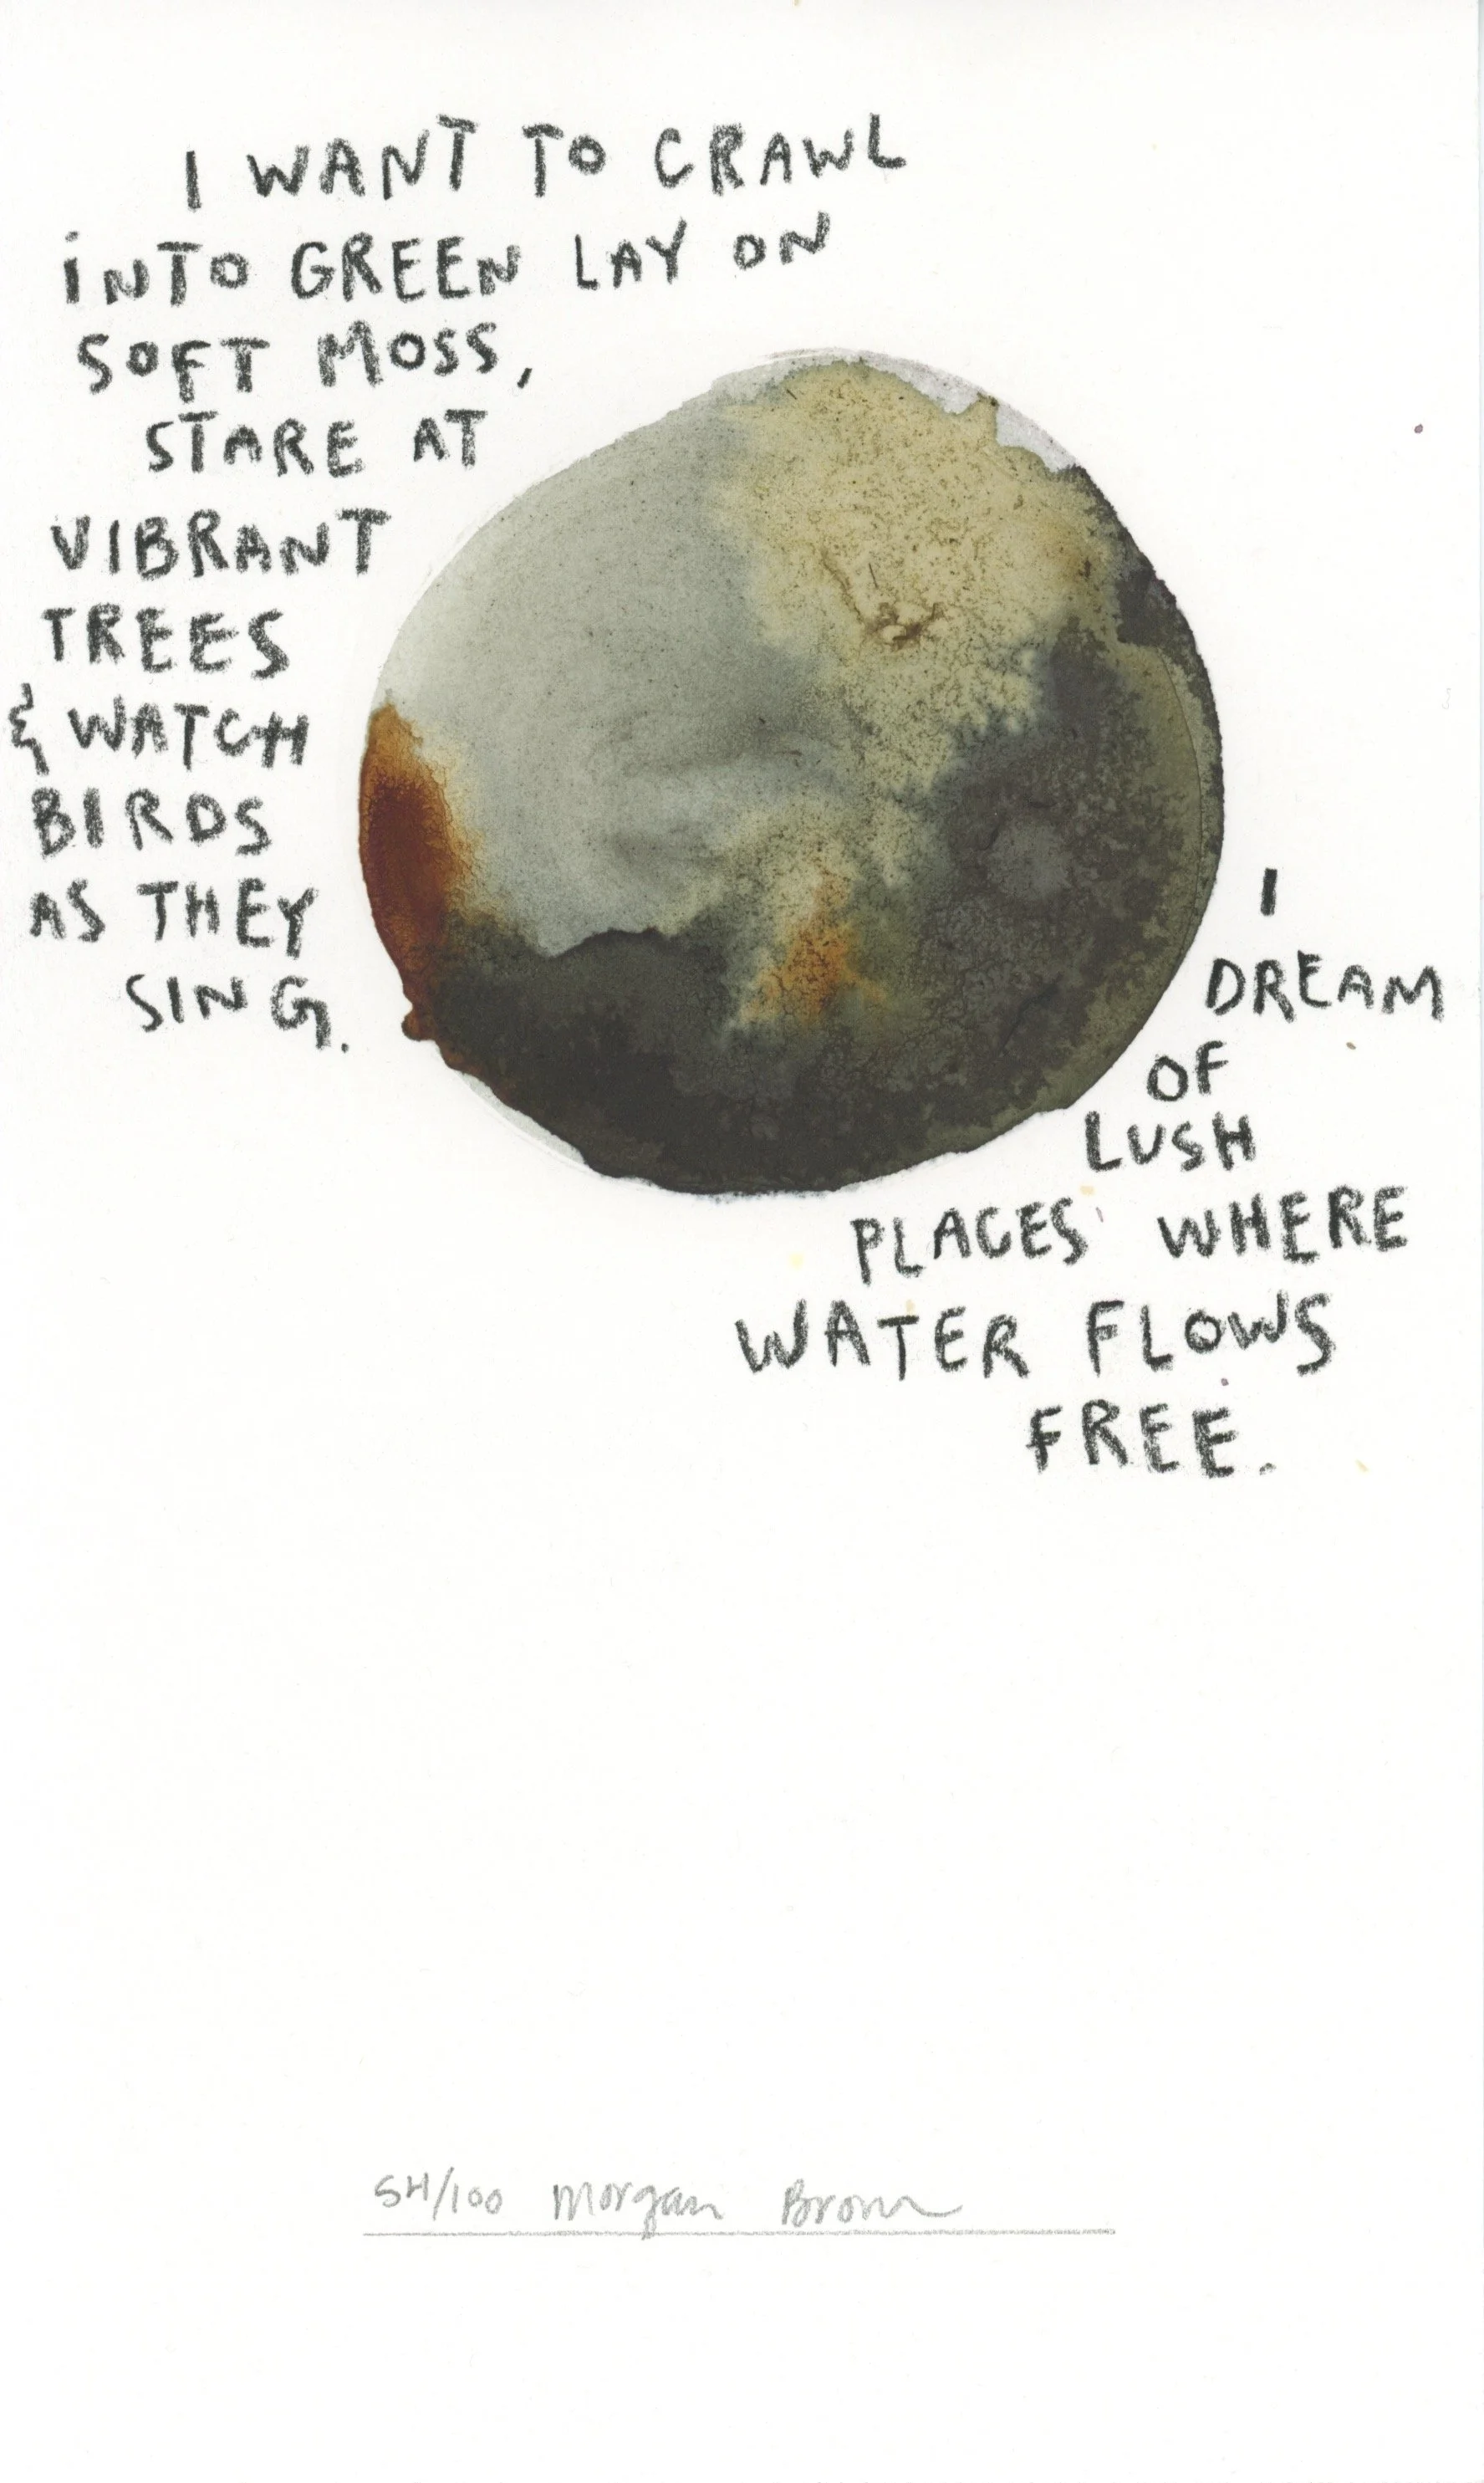 I WANT TO CRAWL
INTO GREEN LAY ON
SOFT MOSS,
STARE AT
VIBRANT
TREES
& WATCH
BIRDS
AS THEY
SING.
I
DREAM
OF
LUSH
PLACES WHERE
WATER FLOWS
FREE.
54/100 Morgan Brown